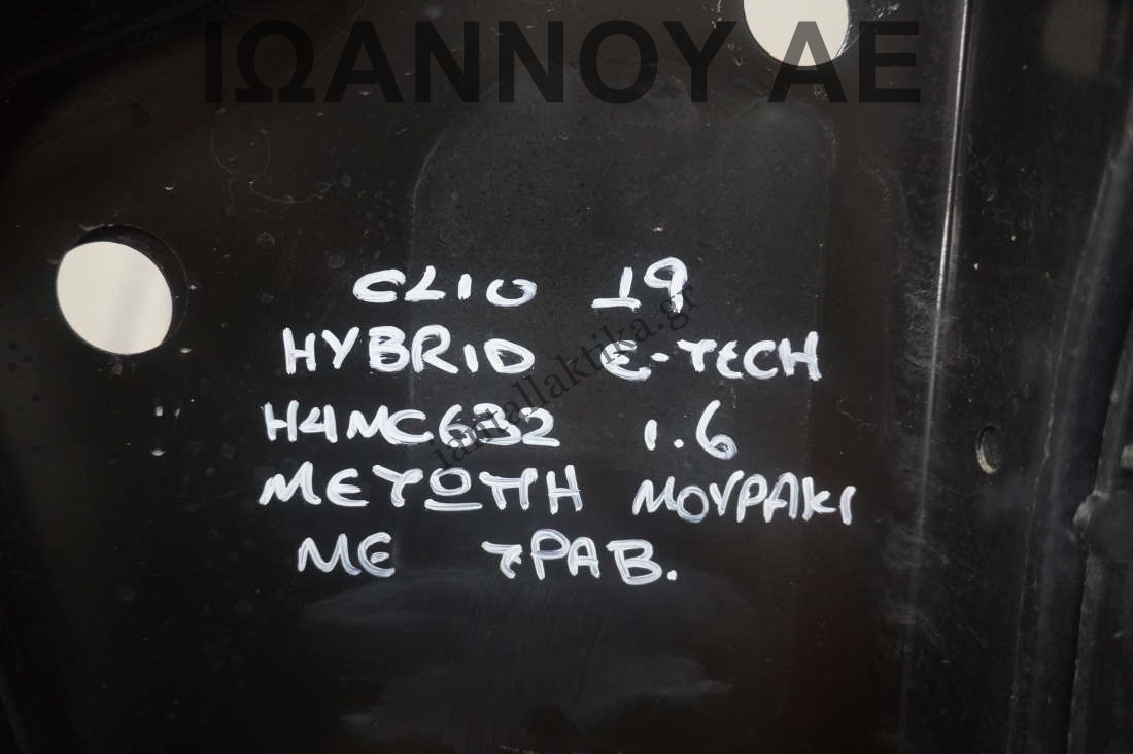 ΙΩΑΝΝΟΥ ΑΕ
CLIO 19
HYBRID E-TECH
H4MC632 1.6
ΜΕΤΩΠΗ ΜΟΥΡΑΚΙ
ΜΕ ΤΡΑΒ.
iantallaktika.gr